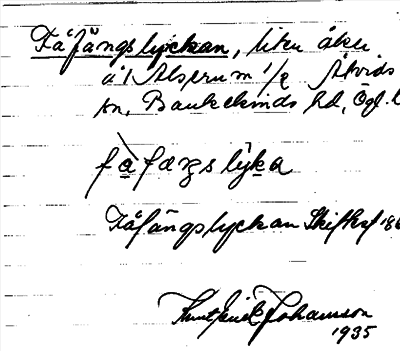 Fåfängslyckan, liten åker
å 1 Alserum 1/2 Åtvids
sn, Bankekinds hd, Ögl.
fåfæŋslyka
Fåfängslyckan Skifteskt 186
Knut Erik Johansson
1935